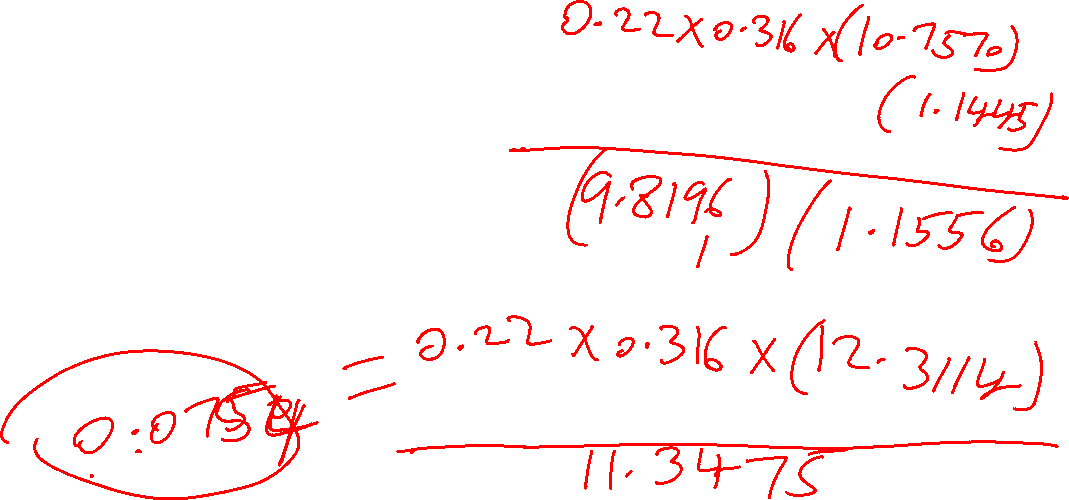 0.22×0.316×(10.7570)
(1.1445)
(9.8196) (1.1556)
= 0.22 × 0.316 × (12.3114)
11.3475